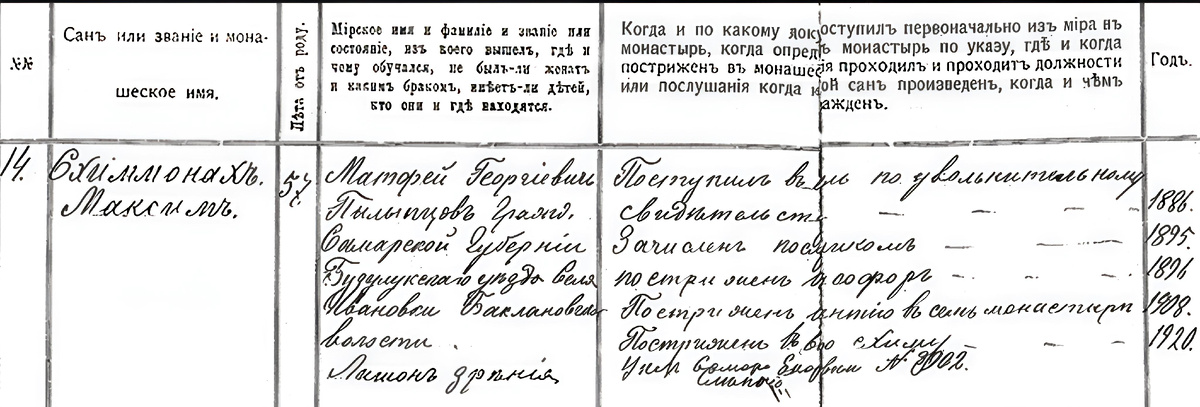 №№
Санъ или званіе и мона-
шеское имя.
Лѣта отъ роду.
Мірское имя и фамиліе и званіе или
состояніе, изъ коего вышелъ, гдѣ и
чому обучался, не былъ-ли женатъ
и какимъ бракомъ, имѣетъ-ли дѣтей,
кто они и гдѣ находятся.
Когда и по какому доку
монастырь, когда опред
постриженъ въ монашес
или послушанія когда и
оступил первоначально изъ міра въ
ъ монастырь по указу, гдѣ и когда
ія проходилъ и проходитъ должности
ой санъ произведен, когда и чѣмъ
ажденъ.
Годъ.
14.
Схіммонахъ.
Максимъ.
57.
Матфей Георгіевичъ
Пылыпцовъ Гражд.
Самарской Губерніи
Бузулукскаго уѣзда Села
Ивановки Баклановской
волости.
Лишонъ зрѣнія
Поступилъ въ по увольнительному
свидѣтельст — — — 1886.
Зачисленъ послушкомъ — — — 1895.
постриженъ рясофоръ — — — 1896
Постриженъ антію въ семъ монастырѣ 1908.
Постриженъ въ схиму — — 1920.
Указ Самар №